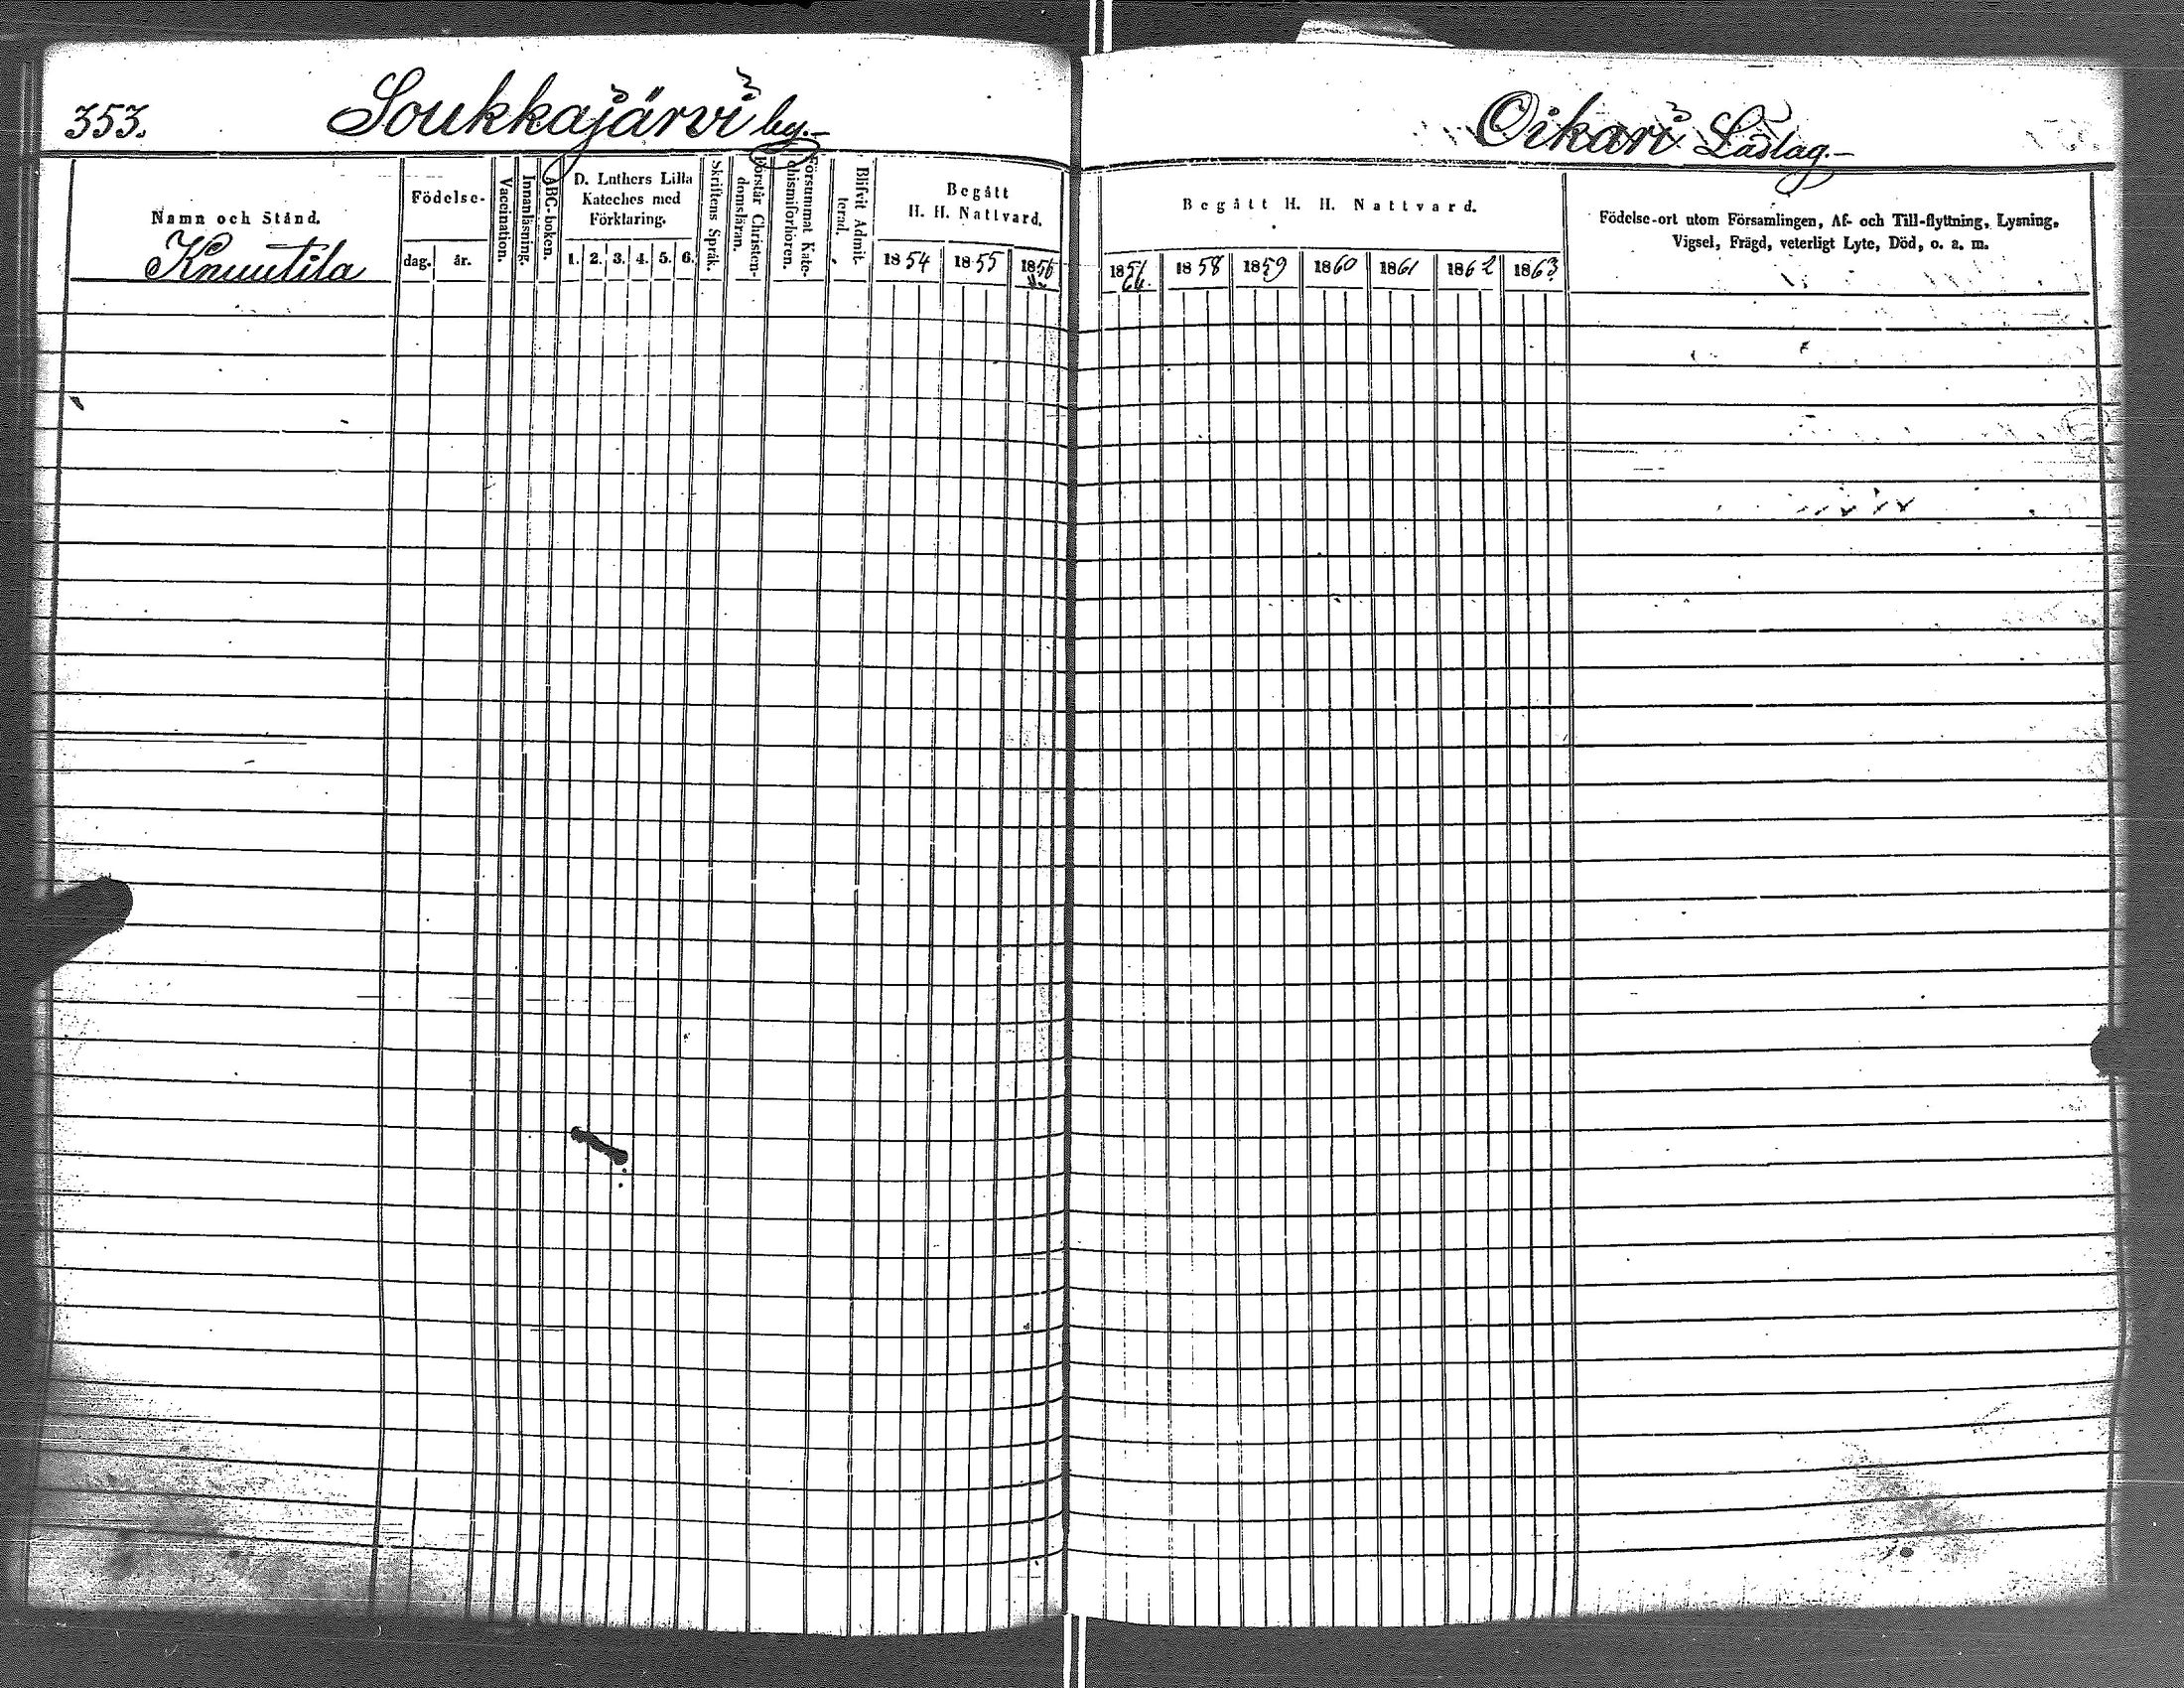 353. Soukkajärvi by.-
Namn och Stånd.
Knuutila
Födelse-
dag. år.
Vaccination.
Innanläsning.
ABC-boken.
D. Luthers Lilla
Kateches med
Förklaring.
1. 2. 3. 4. 5. 6.
Skriftens Språk.
Förstår Christen-
domsläran.
Försummat Kate-
chismiförhören.
Blifvit Admit-
terad.
Begått
H. H. Nattvard.
1854 1855 1856
Oikari Läslag.-
Begått H. H. Nattvard.
1857 1858 1859 1860 1861 1862 1863
Födelse-ort utom Församlingen, Af- och Till-flyttning, Lysning,
Vigsel, Frägd, veterligt Lyte, Död, o. a. m.